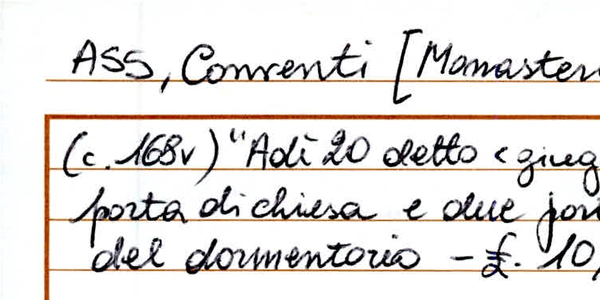 ASS, Conventi [Monasteri
(c. 168v) "Adì 20 detto < giug
porta di chiesa e due
del dormentorio - £. 10,